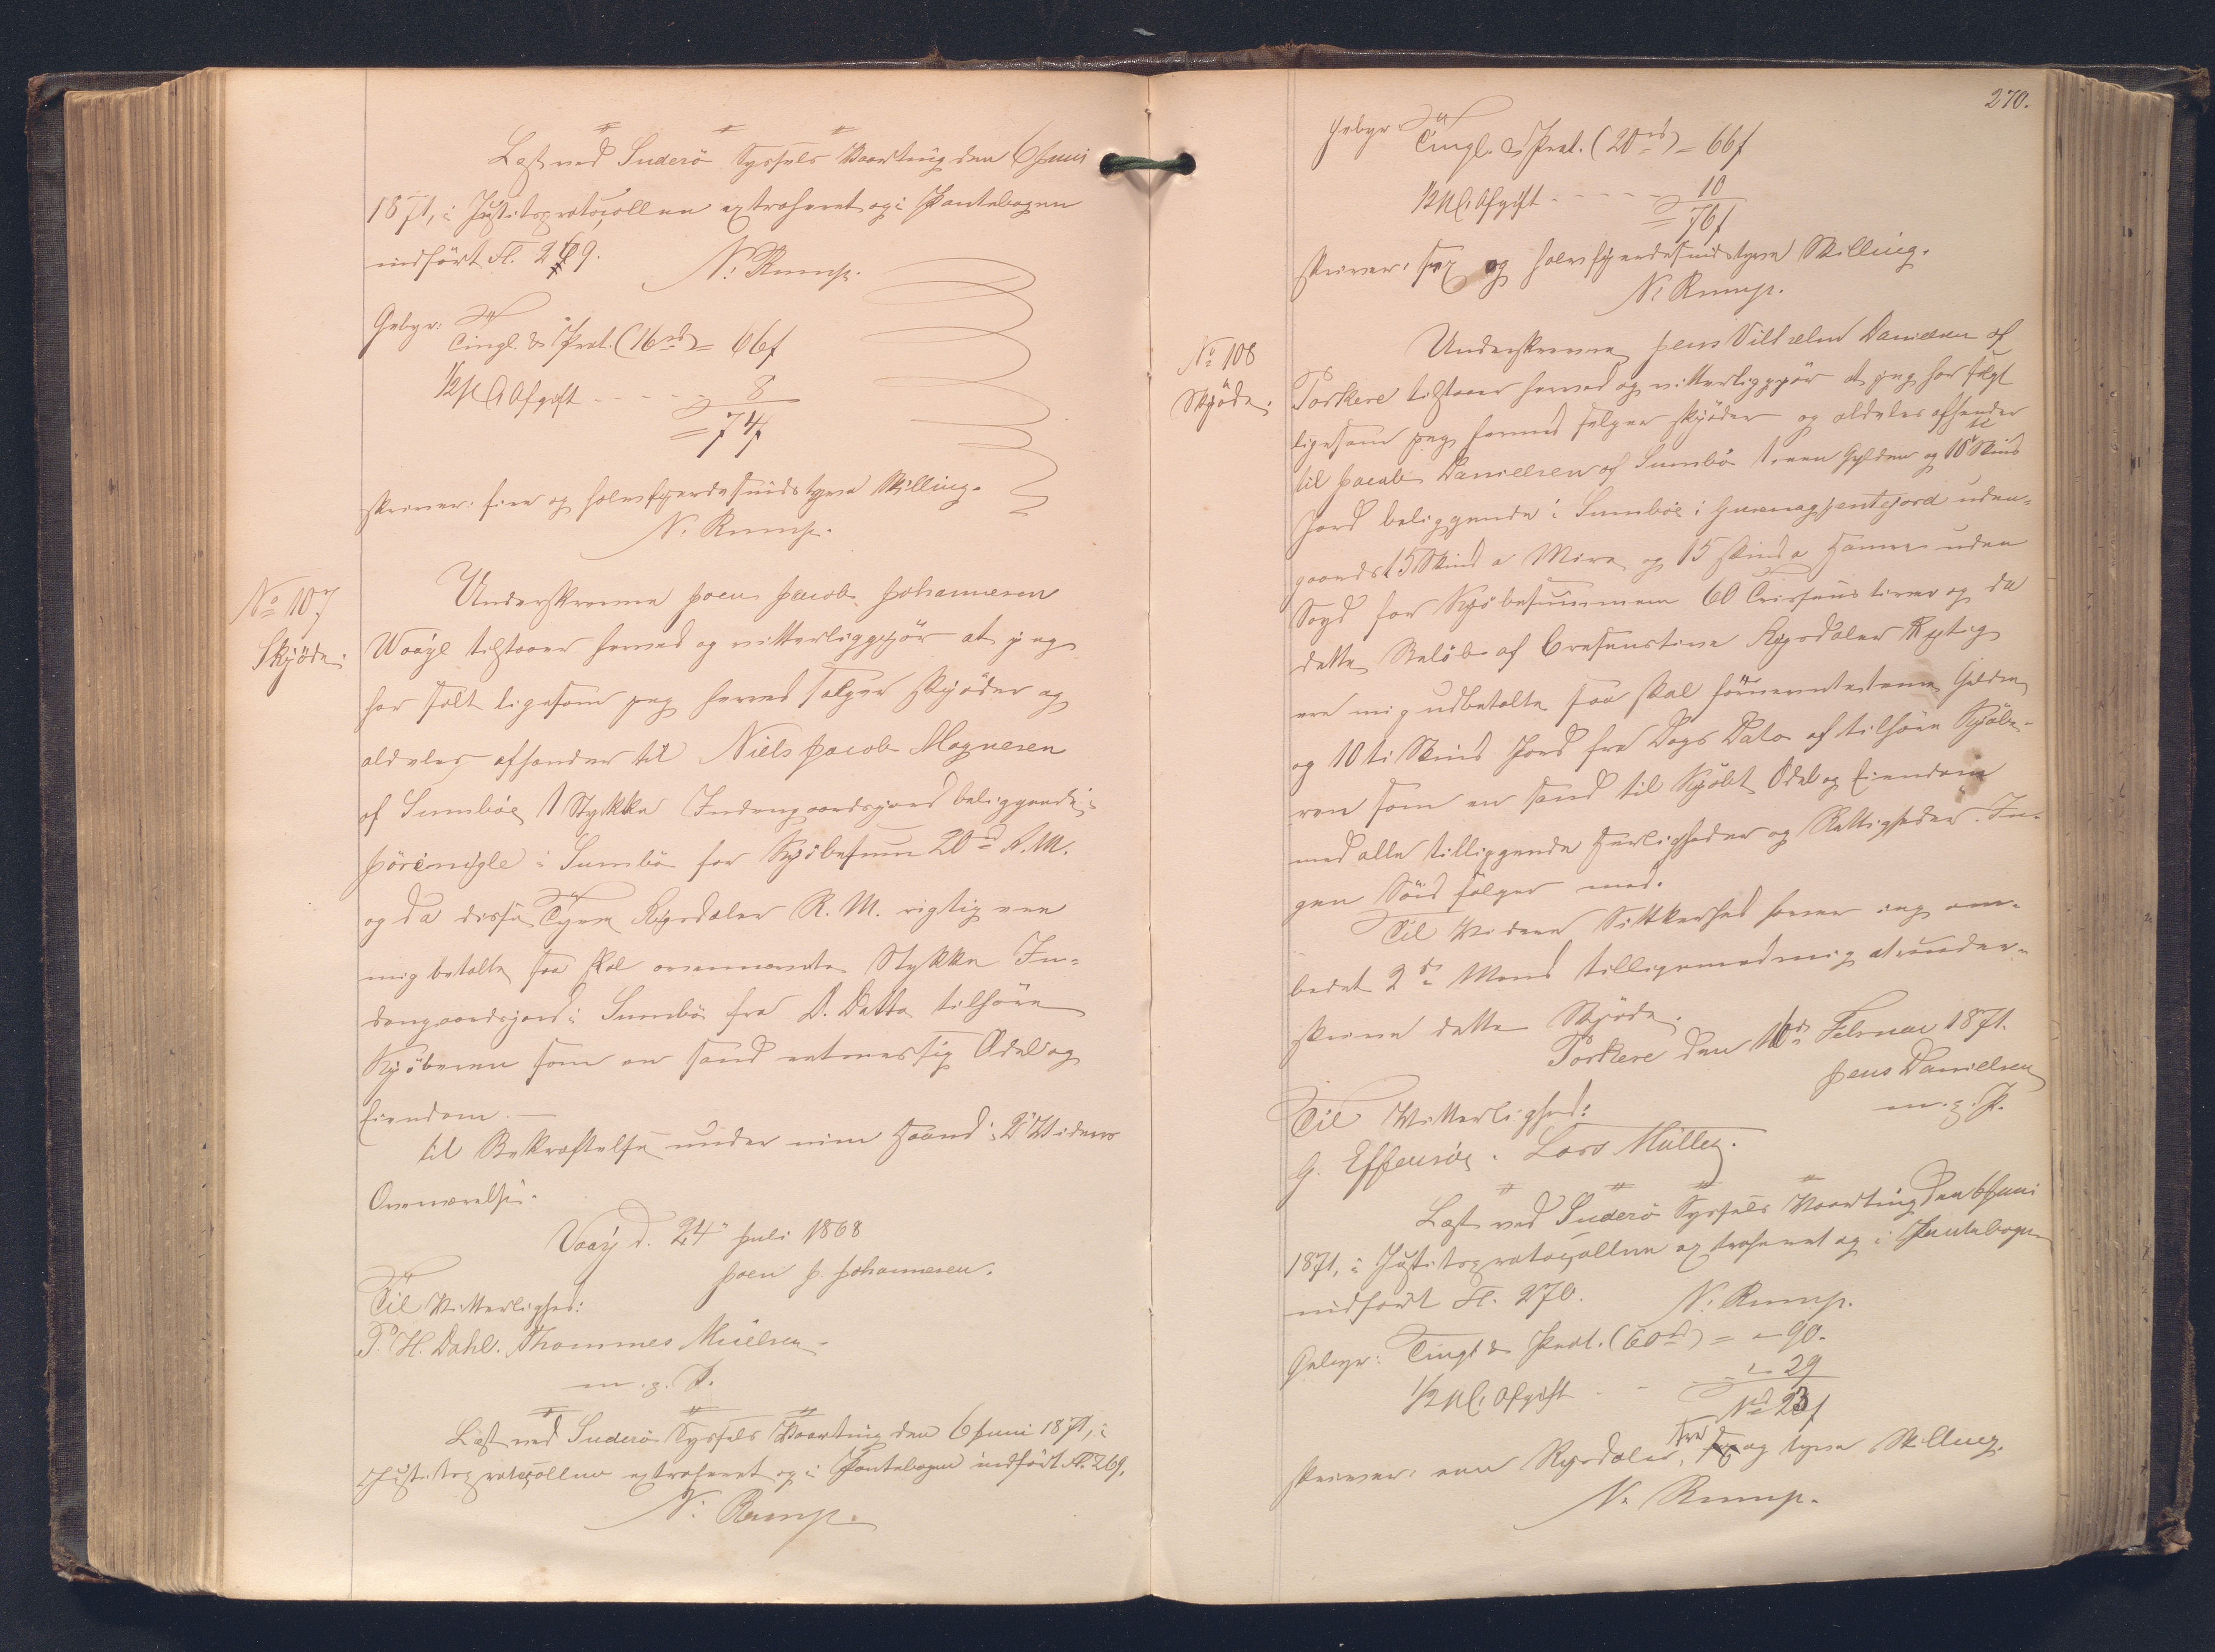 Læst ved Suderö Syssels Vaarting den 6 Juni
1871, i Justitsprotocollen extraheret og i Pantebogen
indført Fl. 269.
N. Rump.
Gebyr: Tingl. & Prot. (16 rd) = 66 f
1/2 pC Afgift - - - - 8
= 74 f
skriver: fire og halvfjerdesindstyve Skilling.
N. Rump.
No 107
Skjöde:
Underskrevne Joen Jacob Johannesen
Waag tilstaaer herved og vitterliggjør at jeg
har solt ligesom jeg herved sælger skjöder og
aldeles afhænder til Niels Jacob Magnesen
af Sumböe 1 Stykke Indengaardsjord beliggende i
i Sumbö for Kjöbesum 20 rd R. M.
og da disse Tyve Rigsdaler R. M. rigtig ere
mig betalte saa skal ovennævnte Stykke In-
dengaardsjord i Sumbö fra D. Datto tilhöre
Kjöberen som en sand retmæssig Odel og
Eiendom. —
til Bekræftelse under min Haand i 2 Vidners
Overværelse.
Vaag d. 24 Juli 1868
Joen J. Johannesen.
Til Vitterlighed:
P. H. Dahl. Thommes Nielsen
m. p. P.
Læst ved Suderö Syssels Vaarting den 6 Juni 1871, i
Justitsprotocollen extraheret og i Pantebogen indført Fl. 269.
N. Rump.
270.
Gebyr: Tingl. & Prot. (20 rd) = 66 f
1/2 pC Afgift - - - - 10
= 76 f
skriver: sex og halvfjerdesindstyve Skilling.
N. Rump.
No 108
Skjöde:
Underskrevne Jens Vilhelm Danielsen af
Porkere tilstaaer herved og vitterliggjør at jeg har sælgt
ligesom jeg herved sælger skjöder og aldeles afhænder
til Jacob Danielsen af Sumbö 1 een Gylden og 10 Skind
Jord beliggende i Sumböe i uden-
gaards 15 Skind a Mira og 15 skind a Hamre uden
Soyd for Kjöbesummen 60 og da
dette Belöb af Rigsdaler Rigtig
ere mig udbetalte saa skal Gylden
og 10 ti Skind Jord fra Dags Dato af tilhöre Kjöbe-
ren som en sand til Kjöbt Odel og Eiendom
med alle tilliggende Herligheder og Rettigheder. In-
gen Söid følger med.
Til Videre Sikkerhed haver jeg om-
bedet 2de Mænd tilligemed mig at under-
skrive dette Skjöde.
Porkere den 16de Februar 1871.
Jens Danielsen
m. p. P.
Til Vitterlighed:
G. Effersöe. Lars Müller.
Læst ved Suderö Syssels Vaarting den 6 Juni
1871, i Justitsprotocollen extraheret og i Pantebogen
indfört Fl. 270.
N. Rump.
Gebyr: Tingl & Prot. (60 rd) = - 90.
1/2 pC. Afgift - - - 29
1 rd 23 f
skriver: een Rigsdaler, tre og tyve Skilling.
N. Rump.